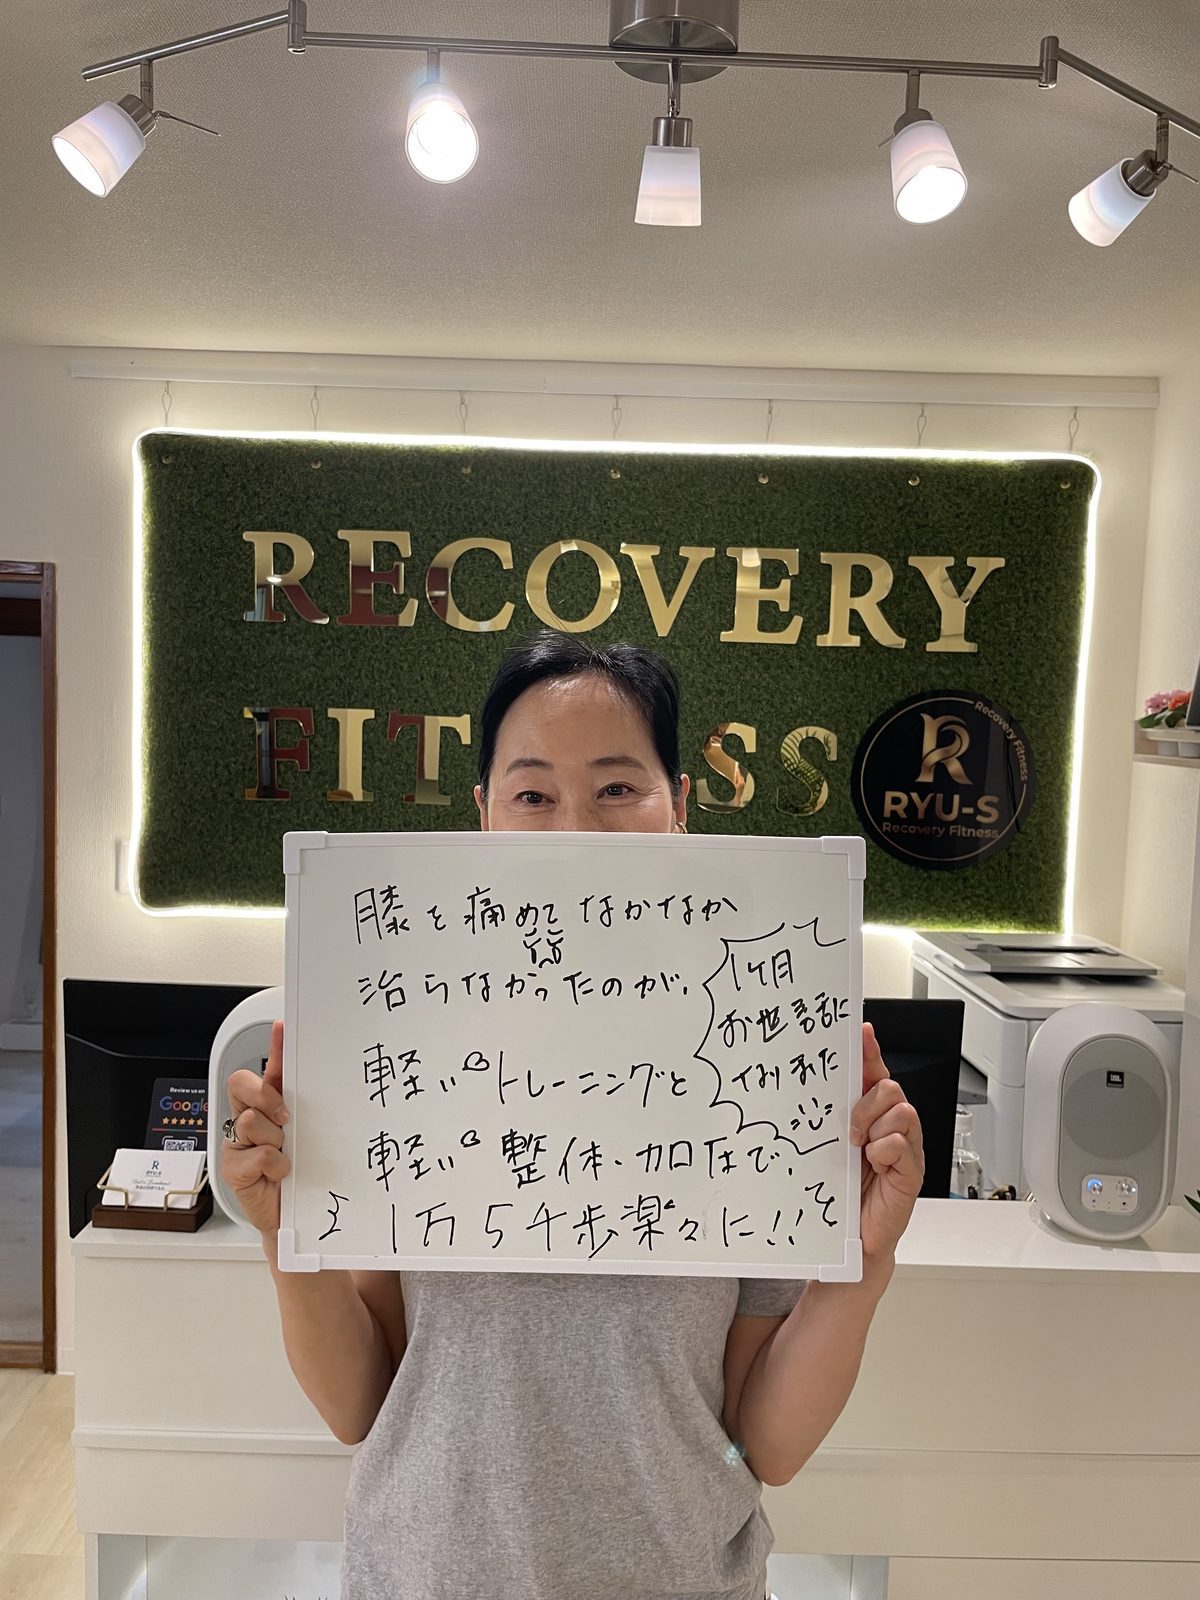 RECOVERY
FIT SS
Recovery Fitness
R
RYU-S
Recovery Fitness
膝を痛めてなかなか
治らなかったのが、
軽いトレーニングと
軽い整体・加圧で、
1万5千歩楽々に!!
1ヶ月
お世話に
なりました
Review us on
Google
RYU-S
JBL